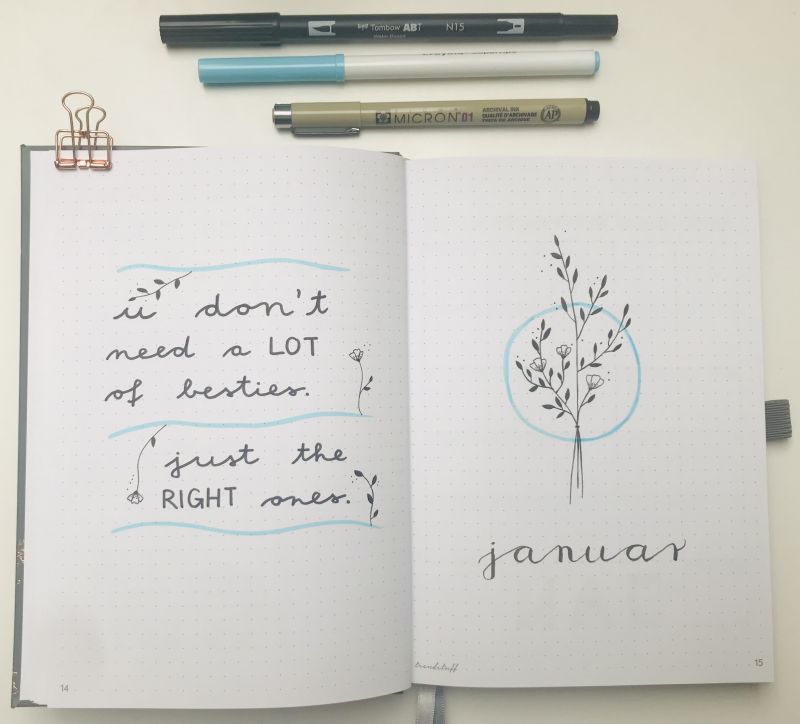 Tombow ABT N15
Water Based
MICRON 01
ARCHIVAL INK
QUALITÉ D'ARCHIVAGE
TINTA DE ARCHIVO
AP
u don't
need a LOT
of besties.
just the
RIGHT ones.
14
januar
trendstuff
15